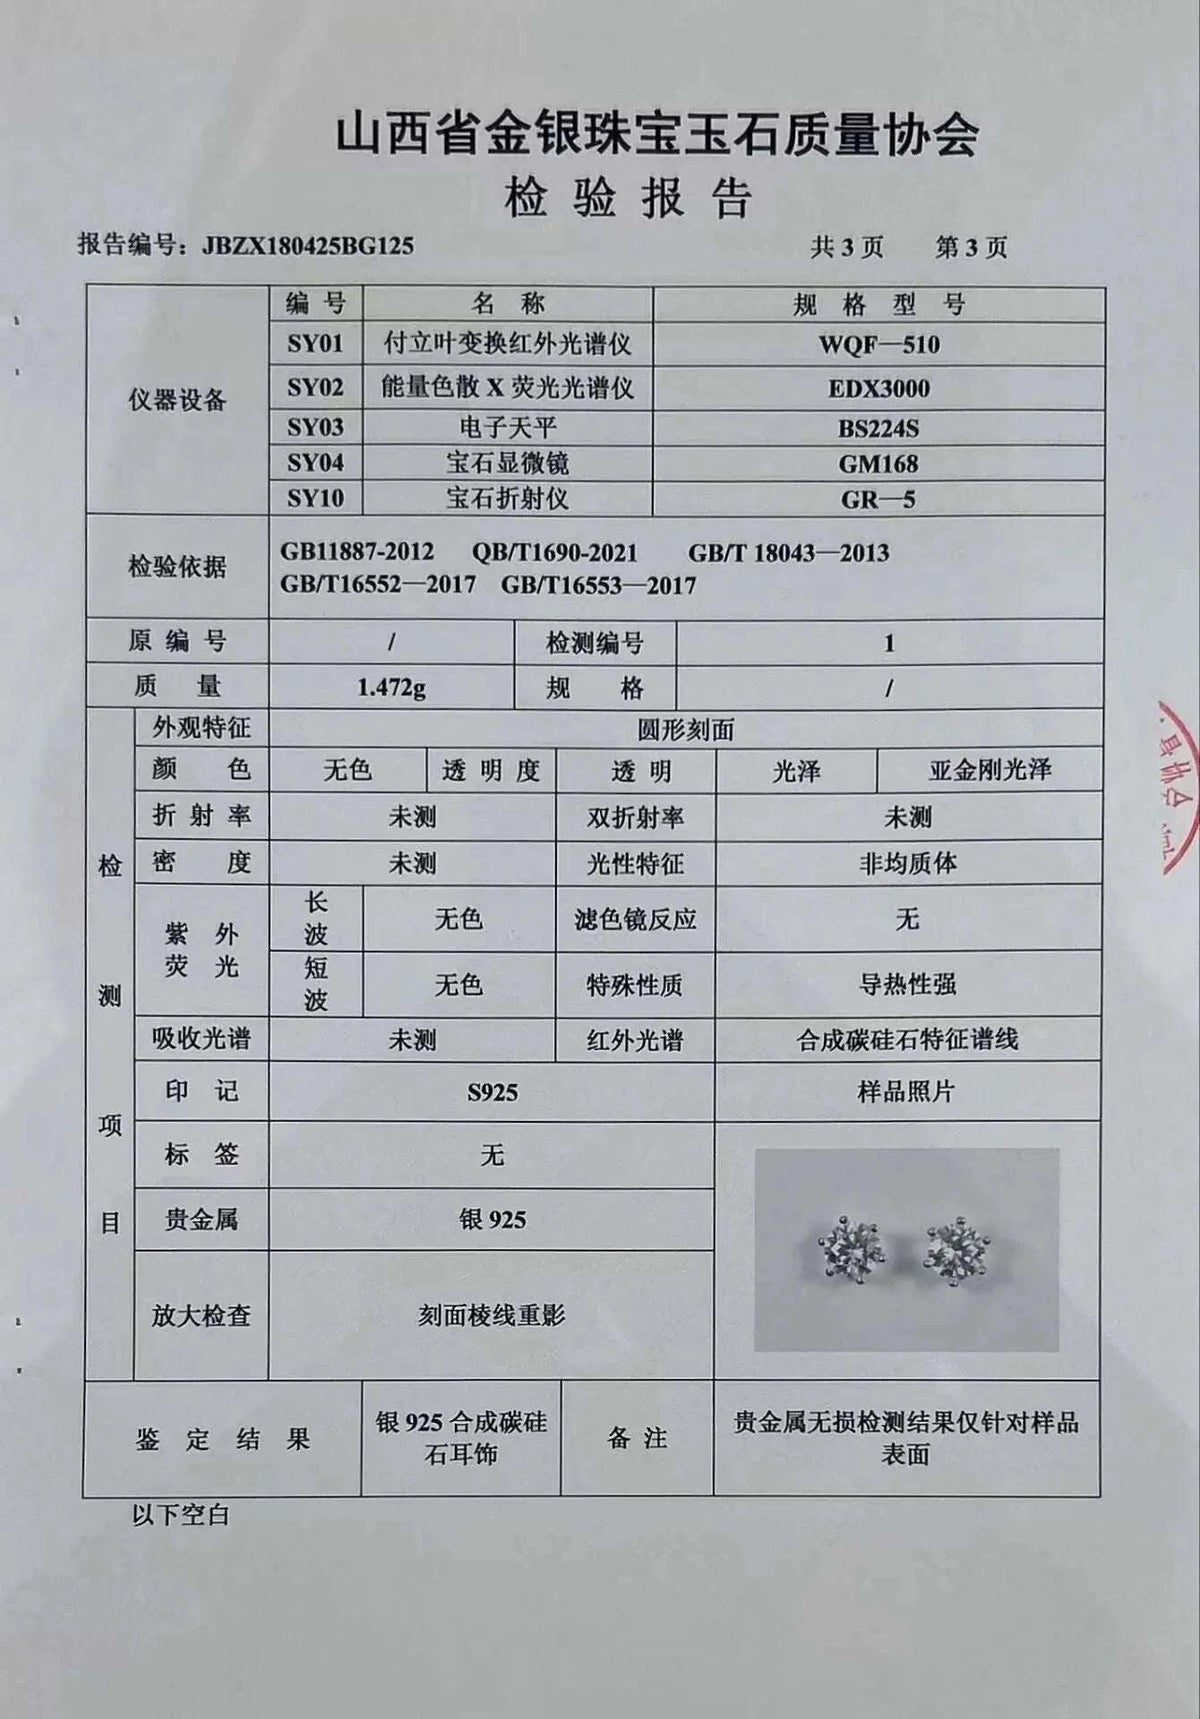 山西省金银珠宝玉石质量协会
检验报告
报告编号：JBZX180425BG125 共3页 第3页
仪器设备 编号 名称 规格型号
SY01 付立叶变换红外光谱仪 WQF—510
SY02 能量色散X荧光光谱仪 EDX3000
SY03 电子天平 BS224S
SY04 宝石显微镜 GM168
SY10 宝石折射仪 GR—5
检验依据 GB11887-2012 QB/T1690-2021 GB/T 18043—2013
GB/T16552—2017 GB/T16553—2017
原编号 / 检测编号 1
质量 1.472g 规格 /
检测项目
外观特征 圆形刻面
颜色 无色 透明度 透明 光泽 亚金刚光泽
折射率 未测 双折射率 未测
密度 未测 光性特征 非均质体
紫外荧光 长波 无色 滤色镜反应 无
短波 无色 特殊性质 导热性强
吸收光谱 未测 红外光谱 合成碳硅石特征谱线
印记 S925 样品照片
标签 无
贵金属 银925
放大检查 刻面棱线重影
鉴定结果 银925合成碳硅石耳饰 备注 贵金属无损检测结果仅针对样品表面
以下空白
协会